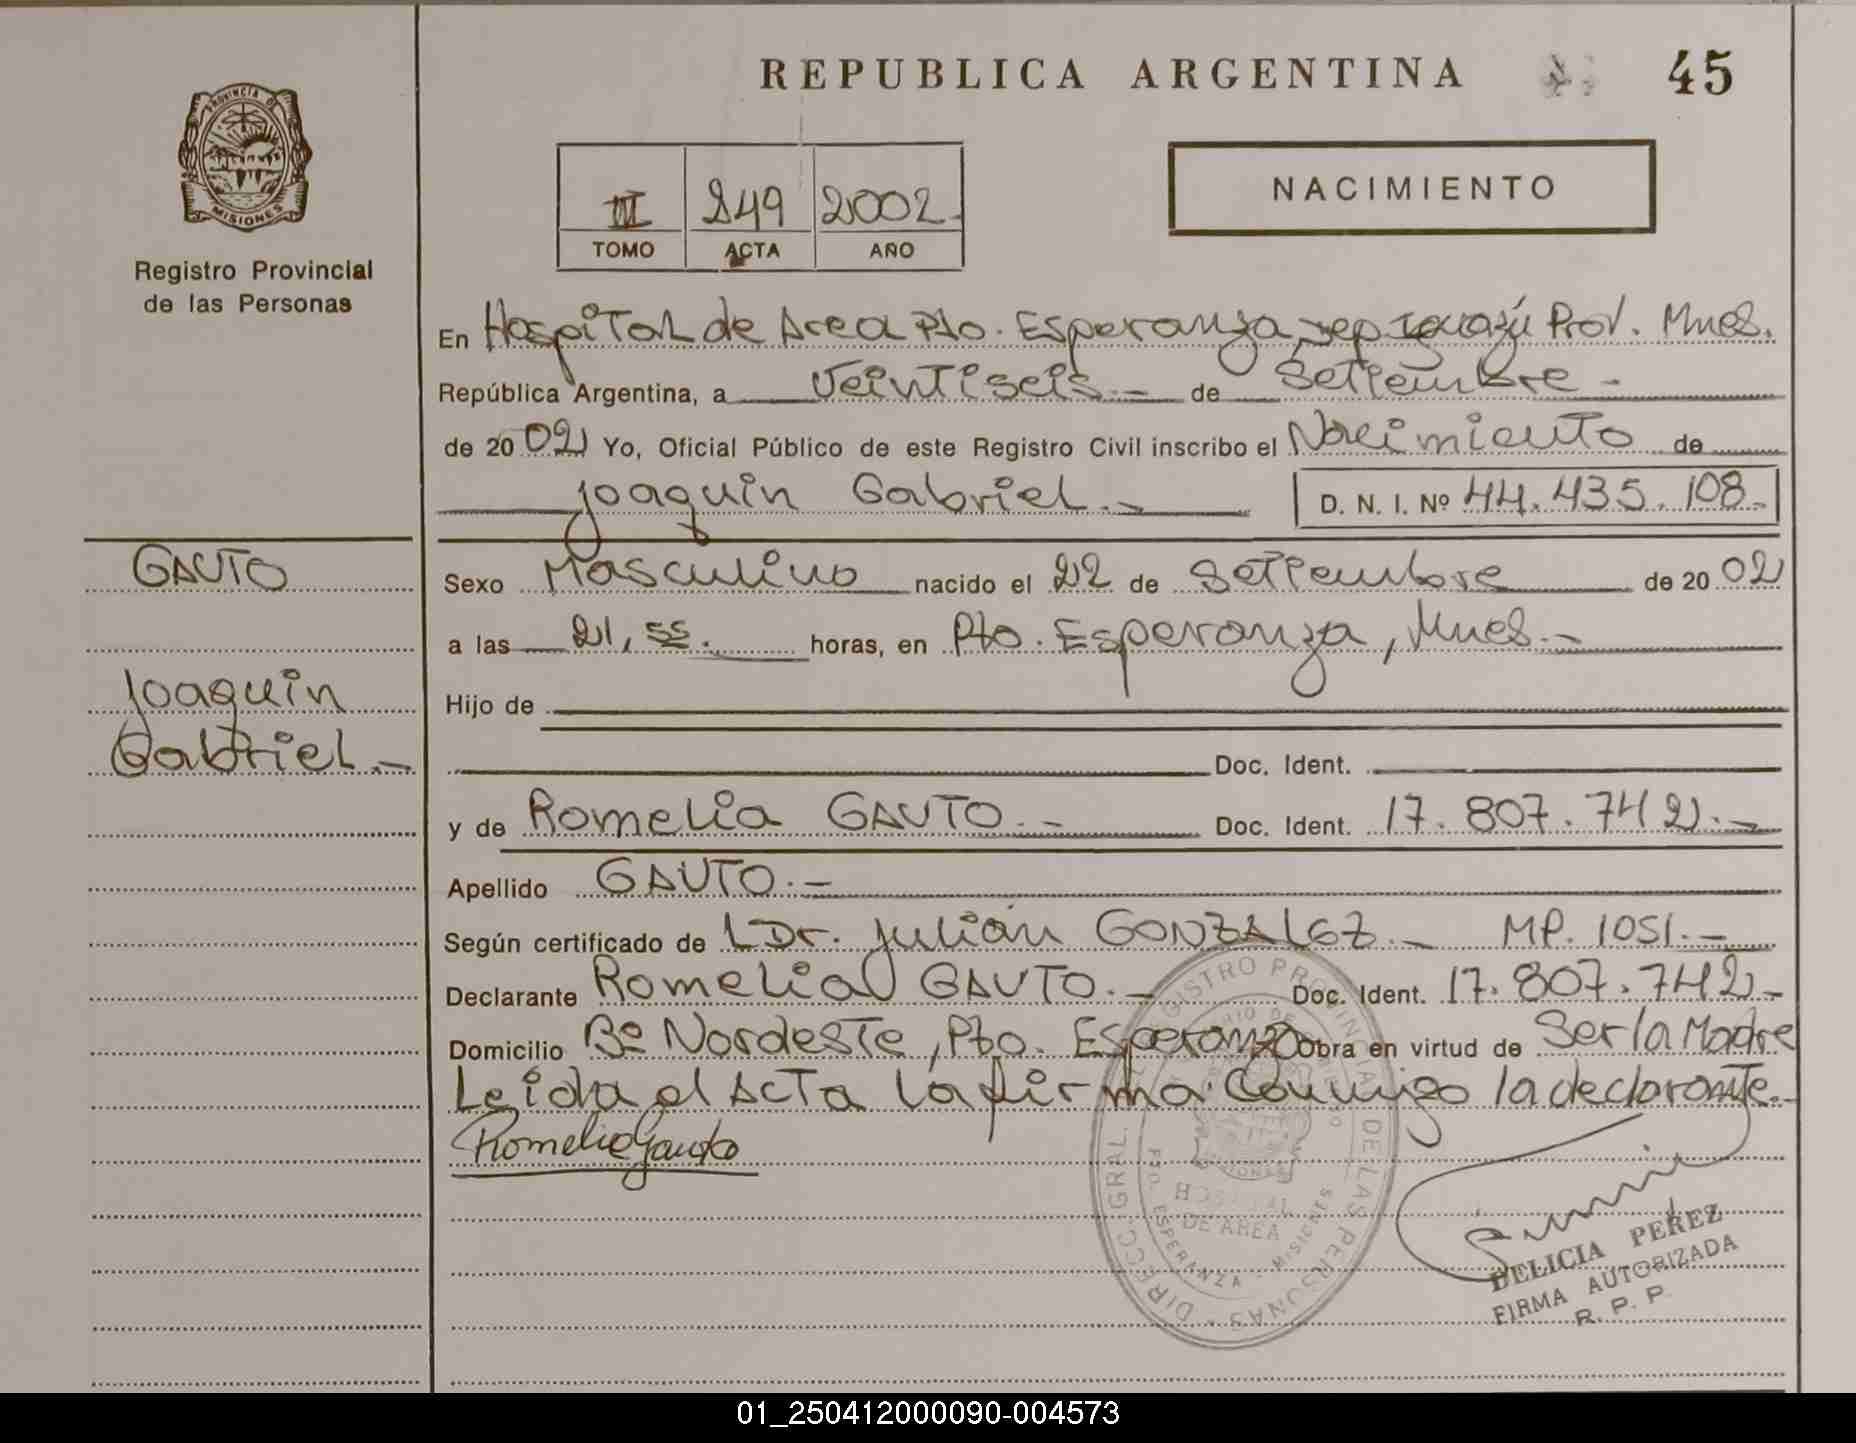 REPUBLICA ARGENTINA 45
PROVINCIA DE
MISIONES
Registro Provincial
de las Personas
III 249 2002
TOMO ACTA AÑO
NACIMIENTO
En Hospital de Area Pto. Esperanza, Dep Iguazú Prov. Mnes.
República Argentina, a Veintiseis.- de Setiembre -
de 2002 Yo, Oficial Público de este Registro Civil inscribo el Nacimiento de
Joaquin Gabriel.- D. N. I. Nº 44.435.108-
GAUTO
Joaquin
Gabriel.-
Sexo Masculino nacido el 22 de Setiembre de 2002
a las 21,55. horas, en Pto. Esperanza, Mnes.-
Hijo de
Doc. Ident.
y de Romelia GAUTO.- Doc. Ident. 17.807.742.-
Apellido GAUTO.-
Según certificado de Dr. Julián GONZALEZ.- MP. 1051.-
Declarante Romelia GAUTO.- Doc. Ident. 17.807.742-
Domicilio Bº Nordeste, Pto. Esperanza Obra en virtud de Ser la Madre
Leida el Acta la firma Conmigo la declarante.-
Romelia Gauto
DIRECC. GRAL. REGISTRO PROVINCIAL DE LAS PERSONAS
HOSPITAL
DE AREA
PTO. ESPERANZA - MISIONES
DELICIA PEREZ
FIRMA AUTORIZADA
R. P. P.
01_250412000090-004573